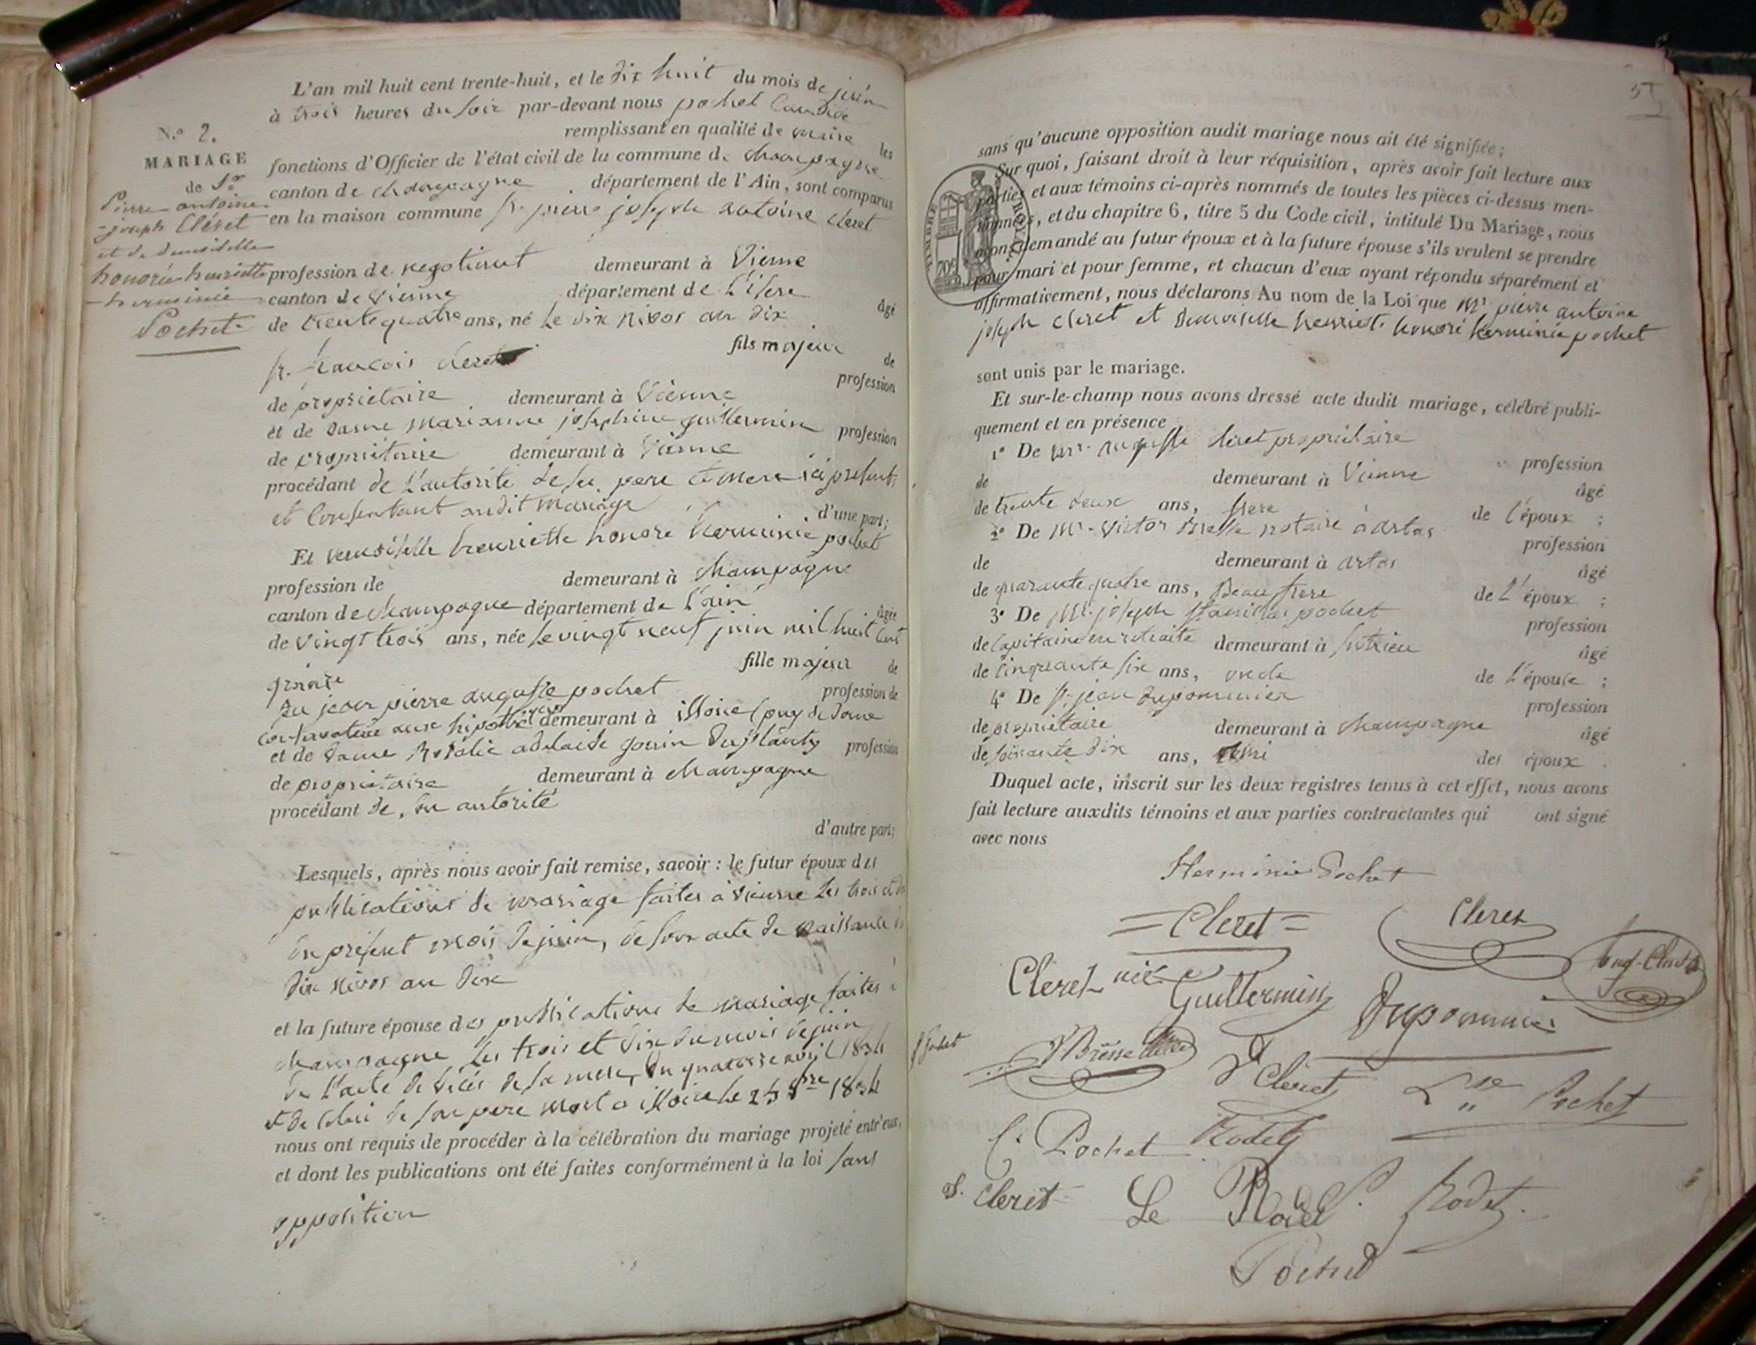 N.º 2.
MARIAGE
de Sr
Pierre antoine
joseph Cléret
et de demoiselle
honorée henriette
herminie
Pochet
L'an mil huit cent trente-huit, et le dix huit du mois de juin
à trois heures du soir par-devant nous pochet
remplissant en qualité de maire les
fonctions d'Officier de l'état civil de la commune de champagne
canton de champagne département de l'Ain, sont comparus
en la maison commune sr pierre joseph antoine cleret
profession de negotiant demeurant à Vienne
canton de Vienne département de L'isere âgé
de trente quatre ans, né le dix nivos an dix
fils majeur de
sr. francois cleret profession
de propriétaire demeurant à Vienne
et de dame marianne josephine guillermin profession
de propriétaire demeurant à Vienne
procédant de L'autorité de ses pere et mere ici present,
et Consentant audit mariage d'une part;
Et demoiselle henriette honoré herminie pochet
profession de demeurant à champagne
canton de champagne département de L'ain âgée
de vingt trois ans, née le vingt neuf juin mil huit cent
quinze fille majeur de
feu jean pierre auguste pochet profession de
conservateur aux hipotheques demeurant à issoire (puy de dome
et de dame Rosalie adelaide gonin duplanty profession
de propriétaire demeurant à champagne
procédant de, son autorité
d'autre part;
Lesquels, après nous avoir fait remise, savoir: le futur époux des
publications de mariage faites à vienne les trois et dix
du présent mois de juin, de son acte de naissance du
dix nivos an dix
et la future épouse des publications de mariage faites à
champagne les trois et dix du mois de juin
de l'acte de décès de sa mere, du quatorze avril 1834
et de celui de son pere mort a issoire le 25 8bre 1834
nous ont requis de procéder à la célébration du mariage projeté entr'eux,
et dont les publications ont été faites conformément à la loi sans
opposition
51
sans qu'aucune opposition audit mariage nous ait été signifiée;
Sur quoi, faisant droit à leur réquisition, après avoir fait lecture aux
parties et aux témoins ci-après nommés de toutes les pièces ci-dessus men-
tionnées, et du chapitre 6, titre 5 du Code civil, intitulé Du Mariage, nous
avons demandé au futur époux et à la future épouse s'ils veulent se prendre
pour mari et pour femme, et chacun d'eux ayant répondu séparément et
affirmativement, nous déclarons Au nom de la Loi que Mr. pierre antoine
joseph cleret et demoiselle henriette honoré herminie pochet
TIMBRE ROYAL
70c
sont unis par le mariage.
Et sur-le-champ nous avons dressé acte dudit mariage, célébré publi-
quement et en présence
1º De Mr. auguste cleret propriétaire profession
de demeurant à Vienne âgé
de trente deux ans, frere de l'époux;
2º De Mr. Victor Bresse notaire à artas profession
de demeurant à artas âgé
de quarante quatre ans, Beau frere de L'époux;
3º De Mr. joseph stanislas pochet profession
de capitaine en retraite demeurant à Sutrieu âgé
de cinquante six ans, oncle de L'épouse;
4º De sr. jean duponnier profession
de propriétaire demeurant à champagne âgé
de soixante dix ans, ami des époux.
Duquel acte, inscrit sur les deux registres tenus à cet effet, nous avons
fait lecture auxdits témoins et aux parties contractantes qui ont signé
avec nous
Herminie Pochet
Cleret Cleret
Aug. Cleret
Cleret née Guillermin
pochet
V Bresse
Cleret
Pochet
C. Pochet Rodet
S. Cleret Le Rodet Rodet.
Pochet